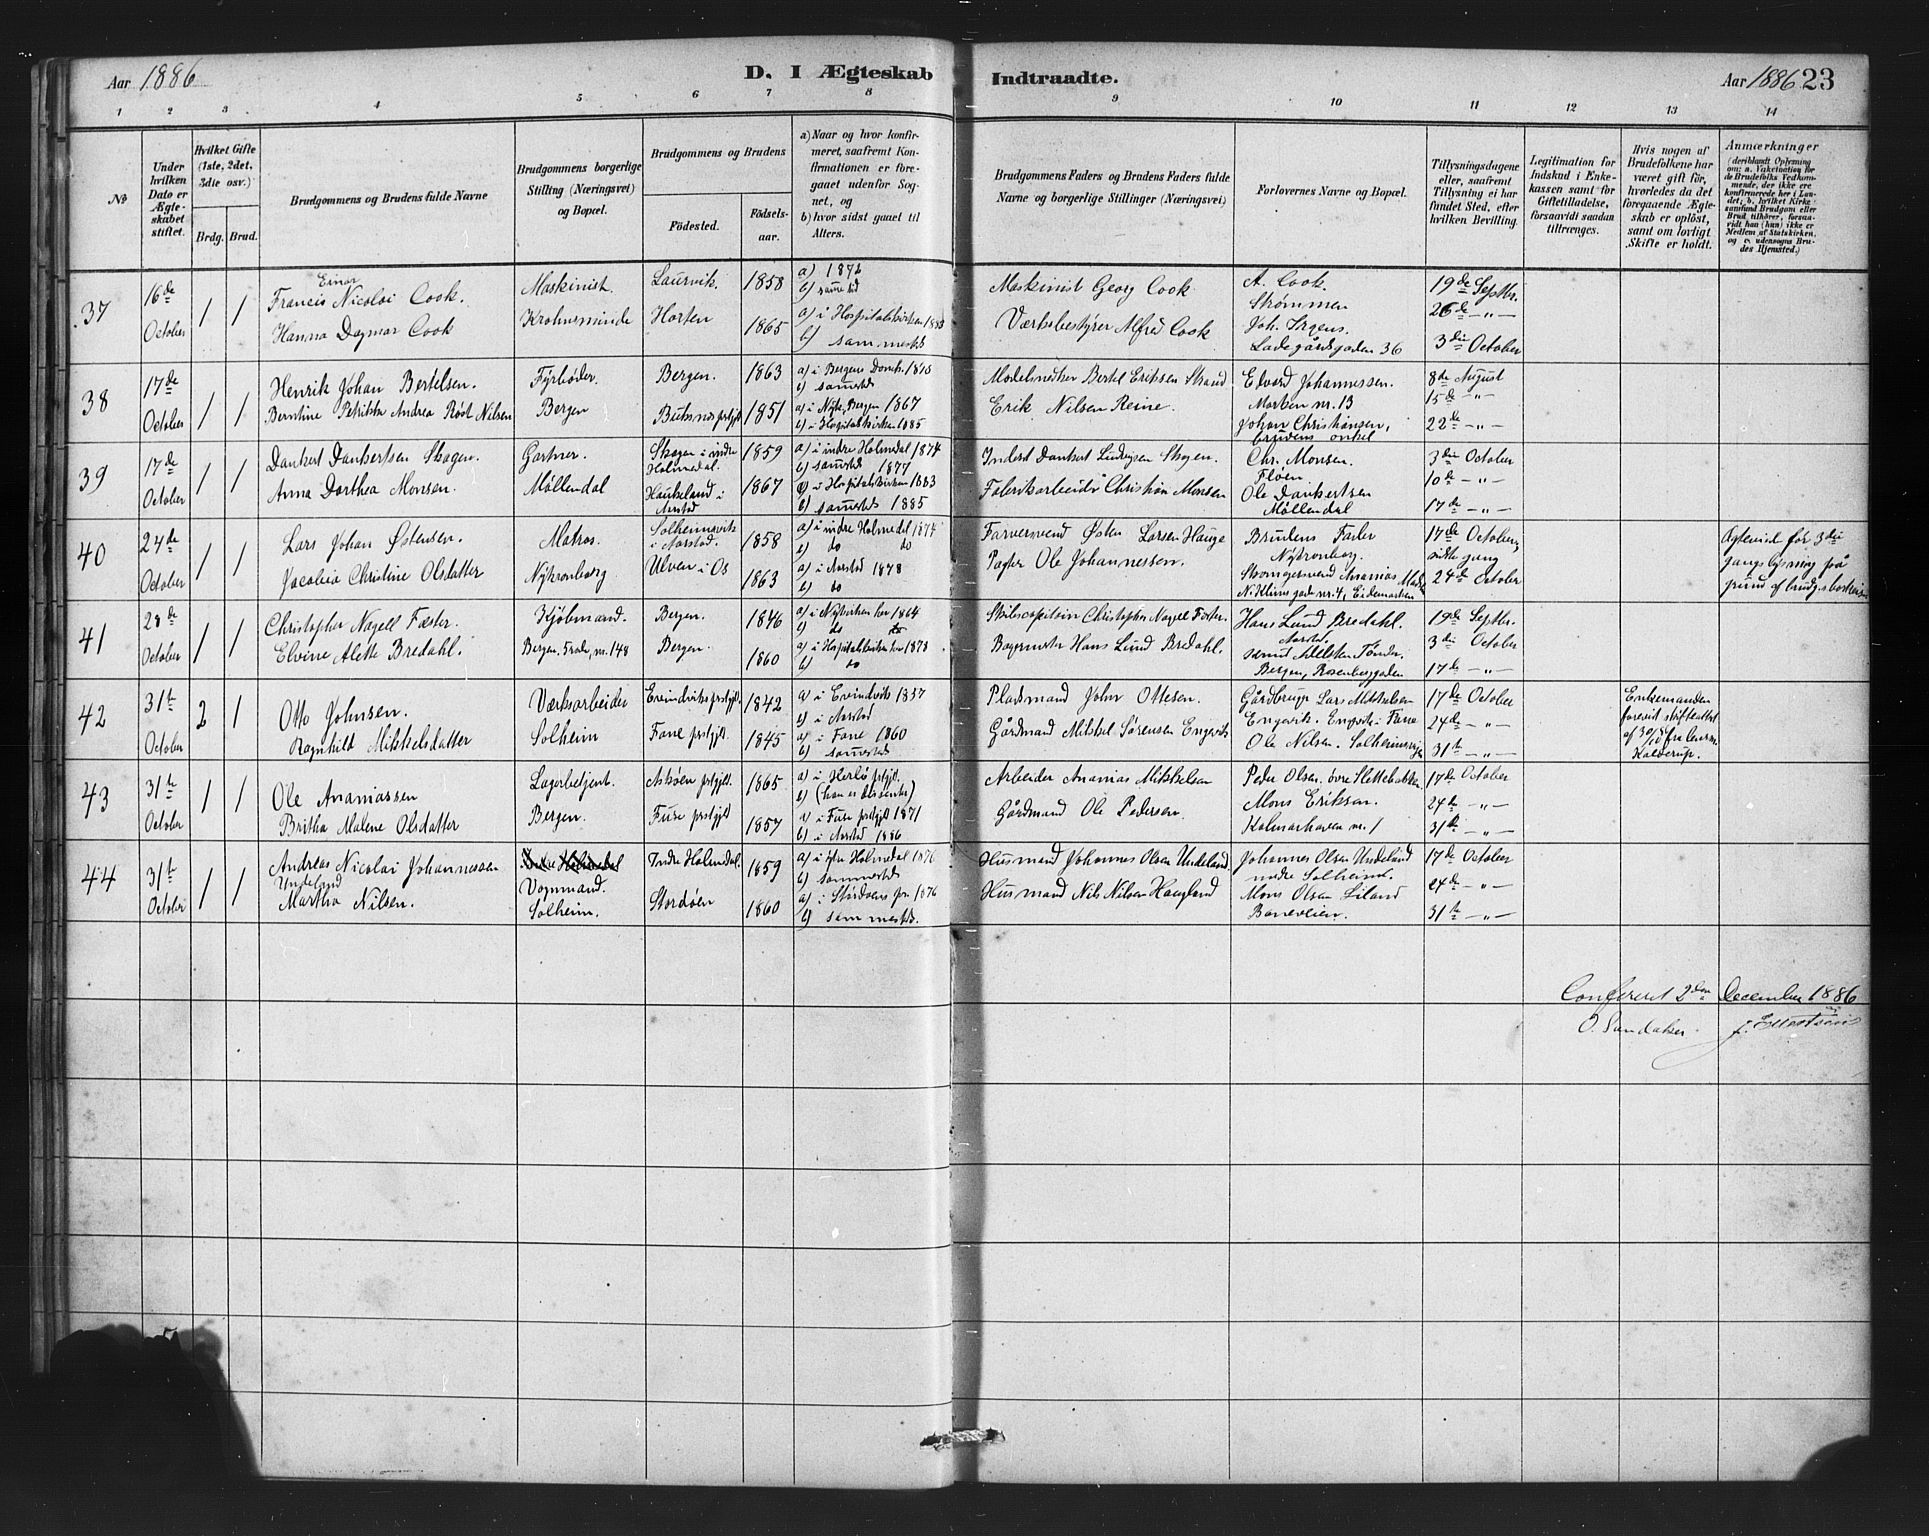 Aar 1886
D. I Ægteskab Indtraadte.
Aar 1886 23
1 2 3 4 5 6 7 8 9 10 11 12 13 14
No
Under hvilken Dato er Ægteskabet stiftet.
Hvilket Gifte (1ste, 2det, 3die osv.)
Brdg. Brud.
Brudgommens og Brudens fulde Navne
Brudgommens borgerlige Stilling (Næringsvei) og Bopæl.
Brudgommens og Brudens
Födested.
Födselsaar.
a) Naar og hvor konfirmeret, saafremt Konfirmationen er foregaaet udenfor Sognet, og
b) hvor sidst gaaet til Alters.
Brudgommens Faders og Brudens Faders fulde Navne og borgerlige Stillinger (Næringsvei)
Forlovernes Navne og Bopæl.
Tillysningsdagene eller, saafremt Tillysning ei har fundet Sted, efter hvilken Bevilling.
Legitimation for Indskud i Enkekassen samt for Giftetilladelse, forsaavidt saadan tiltrænges.
Hvis nogen af Brudefolkene har været gift før, hvorledes da det foregaaende Ægteskab er oplöst, samt om lovligt Skifte er holdt.
Anmærkninger
(deriblandt Oplysning om: a. Vakcination for de Brudefolks Vedkommende, der ikke ere konfirmerede her i Landet, b. hvilket Kirkesamfund Brudgom eller Brud tilhörer, forsaavidt han (hun) ikke er Medlem af Statskirken, og c. udensogns Brudes Hjemsted.)
37
16de October
1 1
Einar
Francis Nicolai Cook.
Hanna Dagmar Cook
Maskinist.
Krohnsminde
Laurvik. 1858
Horten 1865
a) 1872
b) samested
a) i Hospitalskirken
b) sammested.
Maskinist Georg Cook
Værksbestyrer Alfred Cook
A. Cook.
Strømmen
Joh. Irgens.
Ladegårdsgaden 36
19de Septbr.
26de — " —
3die October
38
17de October
1 1
Henrik Johan Bertelsen.
Berntine Petrikka Andrea Røst Nilsen
Fyrbøder.
Bergen
Bergen. 1863
Buksnes prstgjld 1851
a) i Bergens Domk.
b) samested
a) i Nykk. Bergen 1867
b) i Hospitalskirken 1885
Modelsnedker Bertel Eriksen Strand
Erik Nilsen Reine.
Edvard Johannessen.
Marken nr. 13
Johan Christiansen,
Brudens onkel
8de August
15de — " —
22de — " —
39
17de October
1 1
Dankert Dankertsen Skagen.
Anna Dorthea Monsen.
Gartner.
Møllendal
Skagen i indre Holmedal. 1859
Haukeland i Aarstad 1867
a) i indre Holmedal 1874
b) samested 1877
a) i Hospitalskirken 1883
b) samested 1885
Inderst Dankert Ludvigsen Skagen.
Fabrikarbeider Christian Monsen
Chr. Monsen.
Fløen.
Ole Dankertsen
Møllendal
3die October
10de — " —
17de — " —
40
24de October
1 1
Lars Johan Østensen.
Jacobia Christine Olsdatter
Matros.
Nykronborg
Solheimsvik i Aarstad. 1858
Ulven i Os 1863
a) i indre Holmedal 1874
b) do do
a) i Aarstad 1878
b) do
Farversvend Østen Larsen Hauge
Pagter Ole Johannessen.
Brudens Fader
Nykronborg.
Ananias
17de October,
sidste gang
24de October
Ægteviet før 3die
gangs lysning på
grund af brudg.s bortreise
41
28de October
1 1
Christopher Nagell Fæster.
Elvine Alette Bredahl.
Kjøbmand.
Bergen, nr. 148
Bergen. 1846
Bergen. 1860
a) i Nykirken her 1864
b) do do
a) i Hospitalskirken her 1878
b) do
Skibscapitain Christopher Nagell Fæster.
Bagermester Hans Lund Bredahl.
Hans Lund Bredahl.
Aarstad.
Bergen, Rosenberggaden
19de Septbr.
3die October
17de — " —
42
31te October
2 1
Otto Johnsen.
Ragnhild Mikkelsdatter
Værksarbeider
Solheim
Evindviks prstgjld. 1842
Fane prstgjld. 1845
a) i Evindvik 1857
b) i Aarstad
a) i Fane 1860
b) samested
Pladsmand John Ottesen.
Gårdmand Mikkel Sørensen Engevik
Gårdbruger Lars Mikkelsen
Engevik. Engevik i Fane
Ole Nilsen. Solheimsvigen
17de October
24de — " —
31te — " —
Enkemanden
forevist skifteattest
43
31te October
1 1
Ole Ananiassen
Britha Malene Olsdatter
Lagerbetjent.
Bergen.
Askøen prstgjld. 1865
Fuse prstgjld 1857
a) i Herlø prstgjl.
b) (han er dissenter)
a) i Fuse prstgjld 1871
b) i Aarstad 1886
Arbeider Ananias Mikkelsen
Gårdmand Ole Pedersen.
Peder Olsen. øvre Slettebakke.
Mons Eriksen.
Kalmarhaven nr. 1
17de October
24de — " —
31te — " —
44
31te October
1 1
Andreas Nicolai Johannessen
Undeland
Martha Nilsen.
Indre Holmedal
Vognmand.
Solheim.
Indre Holmedal. 1859
Stordøen 1860
a) i Holmedal 1876
b) sammested
a) i Stordøens pr. 1876
b) sammested.
Husmand Johannes Olsen Undeland.
Husmand Nils Nilsen Haugland
Johannes Olsen Undeland
nedre Solheim.
Mons Olsen Liland
Baneveien.
17de October
24de — " —
31te — " —
Confereret 2den December 1886
O. Sandaker.